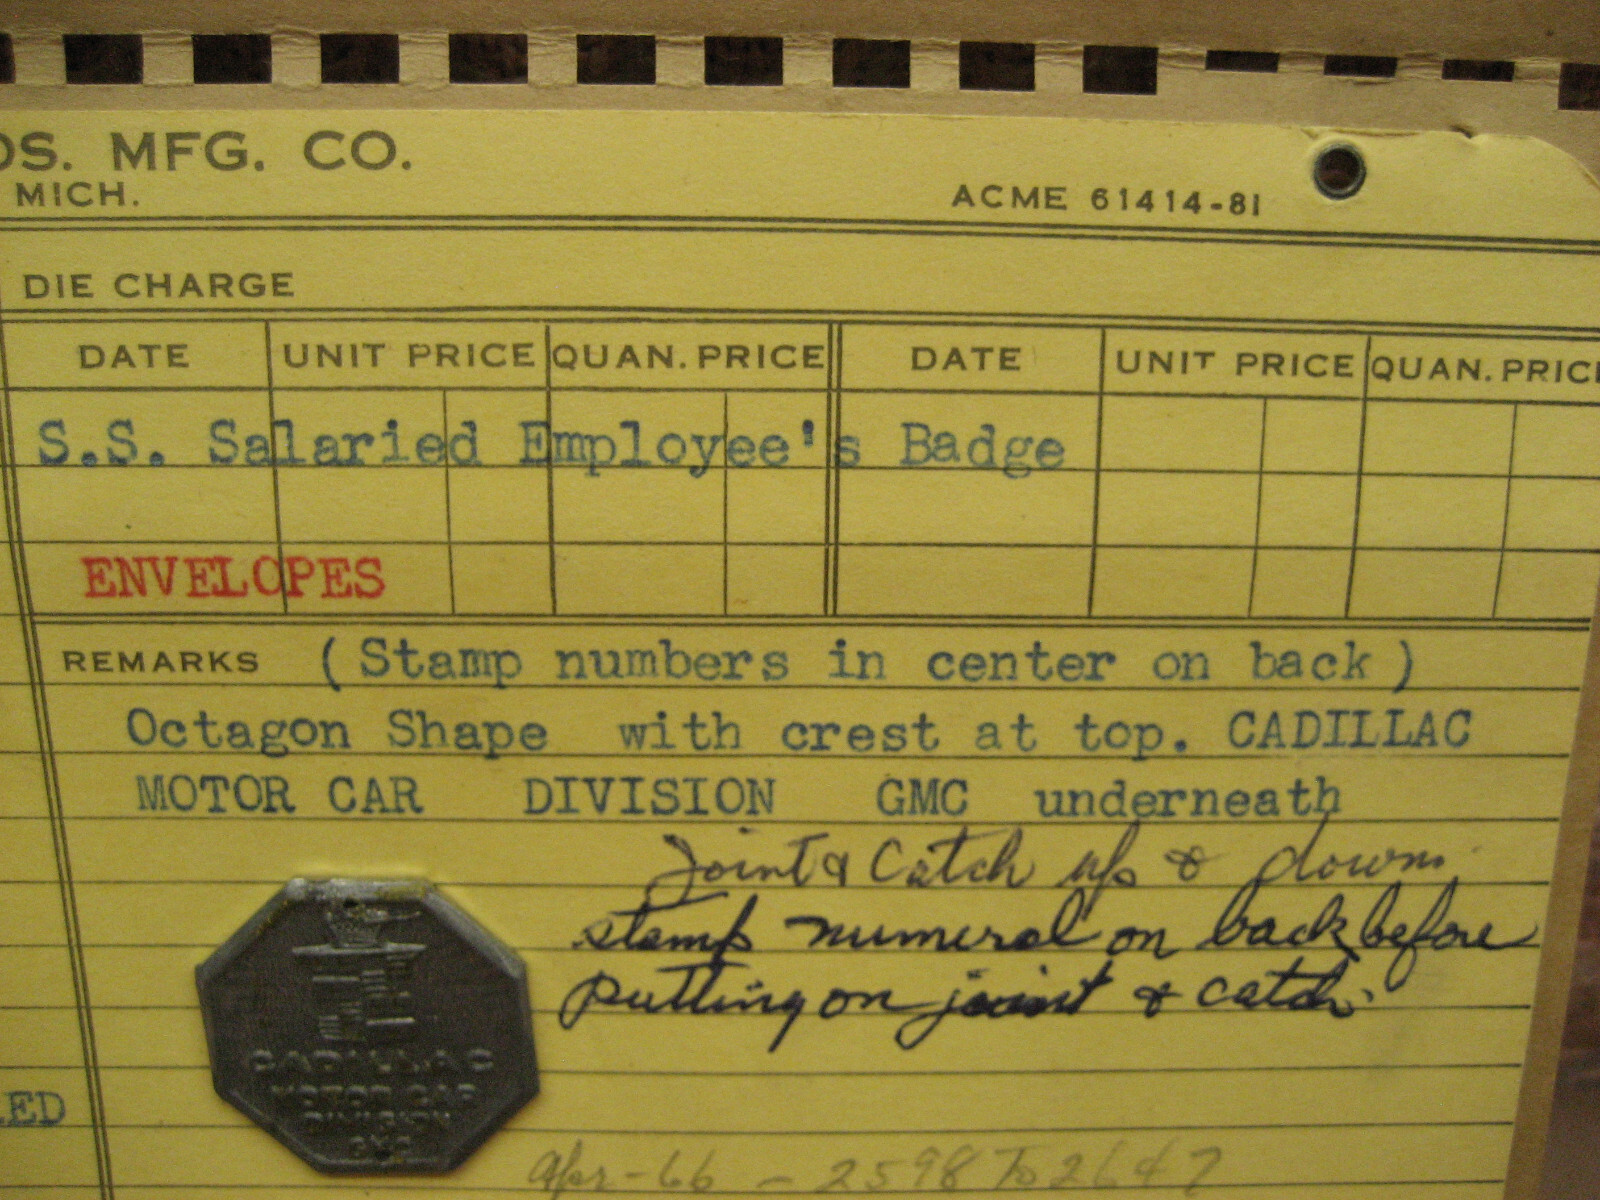 OS. MFG. CO.
MICH.
ACME 61414-81
DIE CHARGE
DATE UNIT PRICE QUAN. PRICE DATE UNIT PRICE QUAN. PRIC
S.S. Salaried Employee's Badge
ENVELOPES
REMARKS (Stamp numbers in center on back)
Octagon Shape with crest at top. CADILLAC
MOTOR CAR DIVISION GMC underneath
Joint & Catch up & down.
stamp numeral on back before
putting on joint & catch.
CADILLAC
MOTOR CAR
DIVISION
GMC
LED
Apr-66 - 2598 To 2647